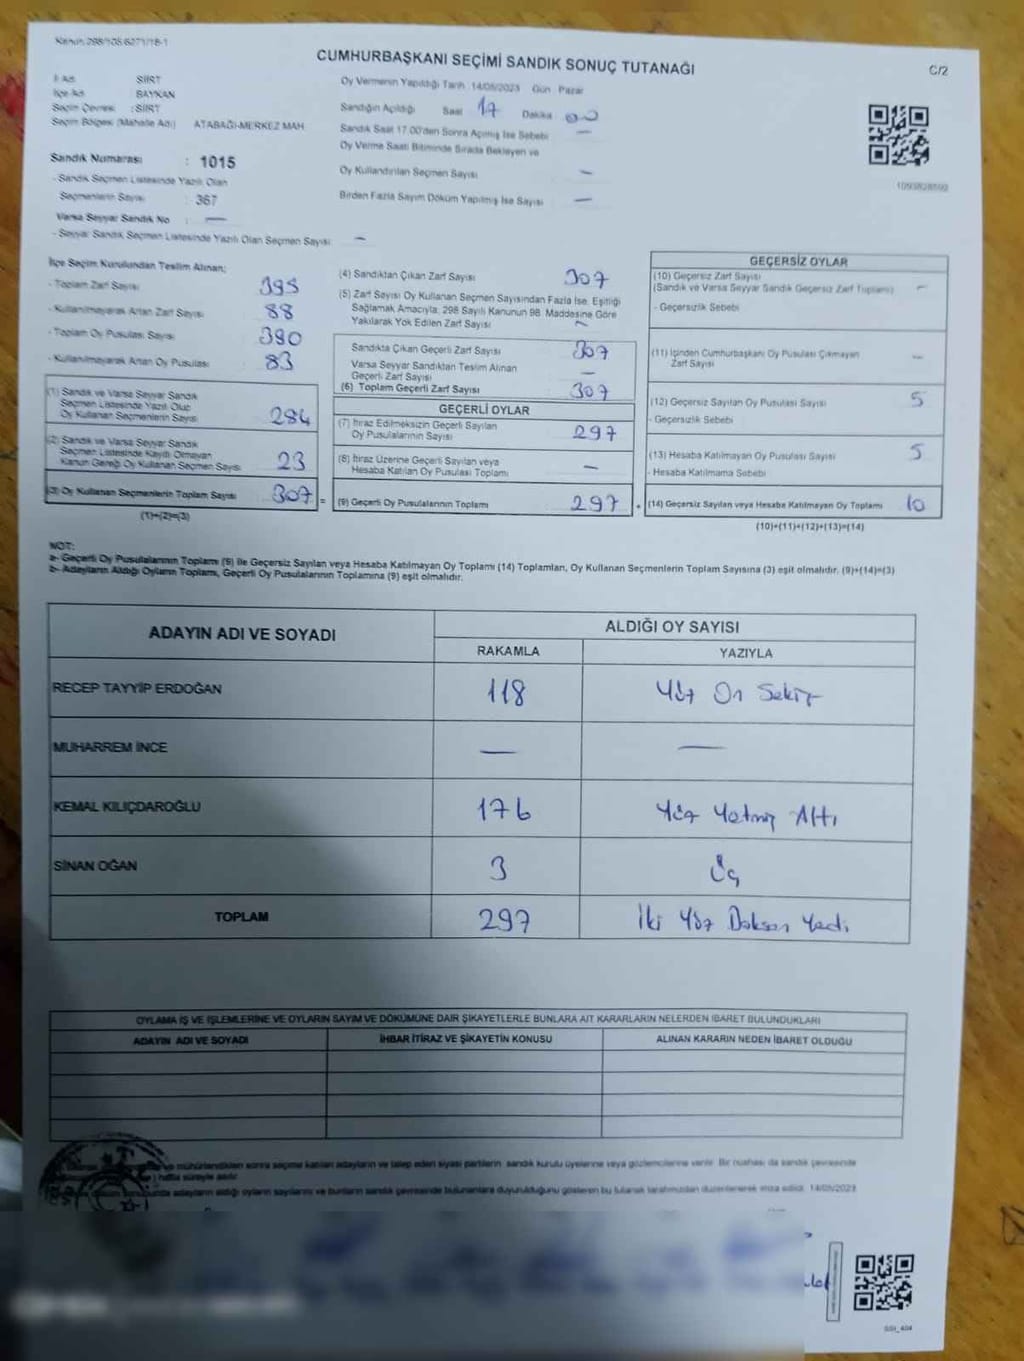 Kanun 298/105,6271/18-1
CUMHURBAŞKANI SEÇİMİ SANDIK SONUÇ TUTANAĞI
C/2
İl Adı : SİİRT
İlçe Adı : BAYKAN
Seçim Çevresi : SİİRT
Seçim Bölgesi (Mahalle Adı) ATABAĞI-MERKEZ MAH.
Sandık Numarası : 1015
- Sandık Seçmen Listesinde Yazılı Olan
Seçmenlerin Sayısı : 367
Varsa Seyyar Sandık No : —
- Seyyar Sandık Seçmen Listesinde Yazılı Olan Seçmen Sayısı: —
Oy Vermenin Yapıldığı Tarih : 14/05/2023 Gün : Pazar
Sandığın Açıldığı Saat 17 Dakika 00
Sandık Saat 17.00'den Sonra Açılmış İse Sebebi —
Oy Verme Saati Bitiminde Sırada Bekleyen ve
Oy Kullandırılan Seçmen Sayısı —
Birden Fazla Sayım Döküm Yapılmış İse Sayısı —
İlçe Seçim Kurulundan Teslim Alınan;
- Toplam Zarf Sayısı 395
- Kullanılmayarak Artan Zarf Sayısı 88
- Toplam Oy Pusulası Sayısı 390
- Kullanılmayarak Artan Oy Pusulası 83
(1) Sandık ve Varsa Seyyar Sandık
Seçmen Listesinde Yazılı Olup
Oy Kullanan Seçmenlerin Sayısı 284
(2) Sandık ve Varsa Seyyar Sandık
Seçmen Listesinde Kayıtlı Olmayan
Kanun Gereği Oy Kullanan Seçmen Sayısı 23
(3) Oy Kullanan Seçmenlerin Toplam Sayısı 307 =
(1)+(2)=(3)
(4) Sandıktan Çıkan Zarf Sayısı 307
(5) Zarf Sayısı Oy Kullanan Seçmen Sayısından Fazla İse, Eşitliği
Sağlamak Amacıyla, 298 Sayılı Kanunun 98. Maddesine Göre
Yakılarak Yok Edilen Zarf Sayısı —
Sandıkta Çıkan Geçerli Zarf Sayısı 307
Varsa Seyyar Sandıktan Teslim Alınan
Geçerli Zarf Sayısı —
(6) Toplam Geçerli Zarf Sayısı 307
GEÇERLİ OYLAR
(7) İtiraz Edilmeksizin Geçerli Sayılan
Oy Pusulalarının Sayısı 297
(8) İtiraz Üzerine Geçerli Sayılan veya
Hesaba Katılan Oy Pusulası Toplamı —
(9) Geçerli Oy Pusulalarının Toplamı 297 +
1093828502
GEÇERSİZ OYLAR
(10) Geçersiz Zarf Sayısı
(Sandık ve Varsa Seyyar Sandık Geçersiz Zarf Toplamı) —
- Geçersizlik Sebebi
(11) İçinden Cumhurbaşkanı Oy Pusulası Çıkmayan
Zarf Sayısı —
(12) Geçersiz Sayılan Oy Pusulası Sayısı 5
- Geçersizlik Sebebi
(13) Hesaba Katılmayan Oy Pusulası Sayısı 5
- Hesaba Katılmama Sebebi
(14) Geçersiz Sayılan veya Hesaba Katılmayan Oy Toplamı 10
(10)+(11)+(12)+(13)=(14)
NOT:
a- Geçerli Oy Pusulalarının Toplamı (9) ile Geçersiz Sayılan veya Hesaba Katılmayan Oy Toplamı (14) Toplamları, Oy Kullanan Seçmenlerin Toplam Sayısına (3) eşit olmalıdır. (9)+(14)=(3)
b- Adayların Aldığı Oyların Toplamı, Geçerli Oy Pusulalarının Toplamına (9) eşit olmalıdır.
ADAYIN ADI VE SOYADI
ALDIĞI OY SAYISI
RAKAMLA YAZIYLA
RECEP TAYYİP ERDOĞAN 118 Yüz On Sekiz
MUHARREM İNCE — —
KEMAL KILIÇDAROĞLU 176 Yüz Yetmiş Altı
SİNAN OĞAN 3 Üç
TOPLAM 297 İki Yüz Doksan Yedi
OYLAMA İŞ VE İŞLEMLERİNE VE OYLARIN SAYIM VE DÖKÜMÜNE DAİR ŞİKAYETLERLE BUNLARA AİT KARARLARIN NELERDEN İBARET BULUNDUKLARI
ADAYIN ADI VE SOYADI İHBAR İTİRAZ VE ŞİKAYETİN KONUSU ALINAN KARARIN NEDEN İBARET OLDUĞU
ve mühürlendikten sonra seçime katılan adayların ve talep eden siyasi partilerin sandık kurulu üyelerine veya gözlemcilerine verilir. Bir nüshası da sandık çevresinde
hafta süreyle asılır.
adayların aldığı oyların sayılarını ve bunların sandık çevresinde bulunanlara duyurulduğunu gösteren bu tutanak tarafımızdan düzenlenerek imza edildi. 14/05/2023